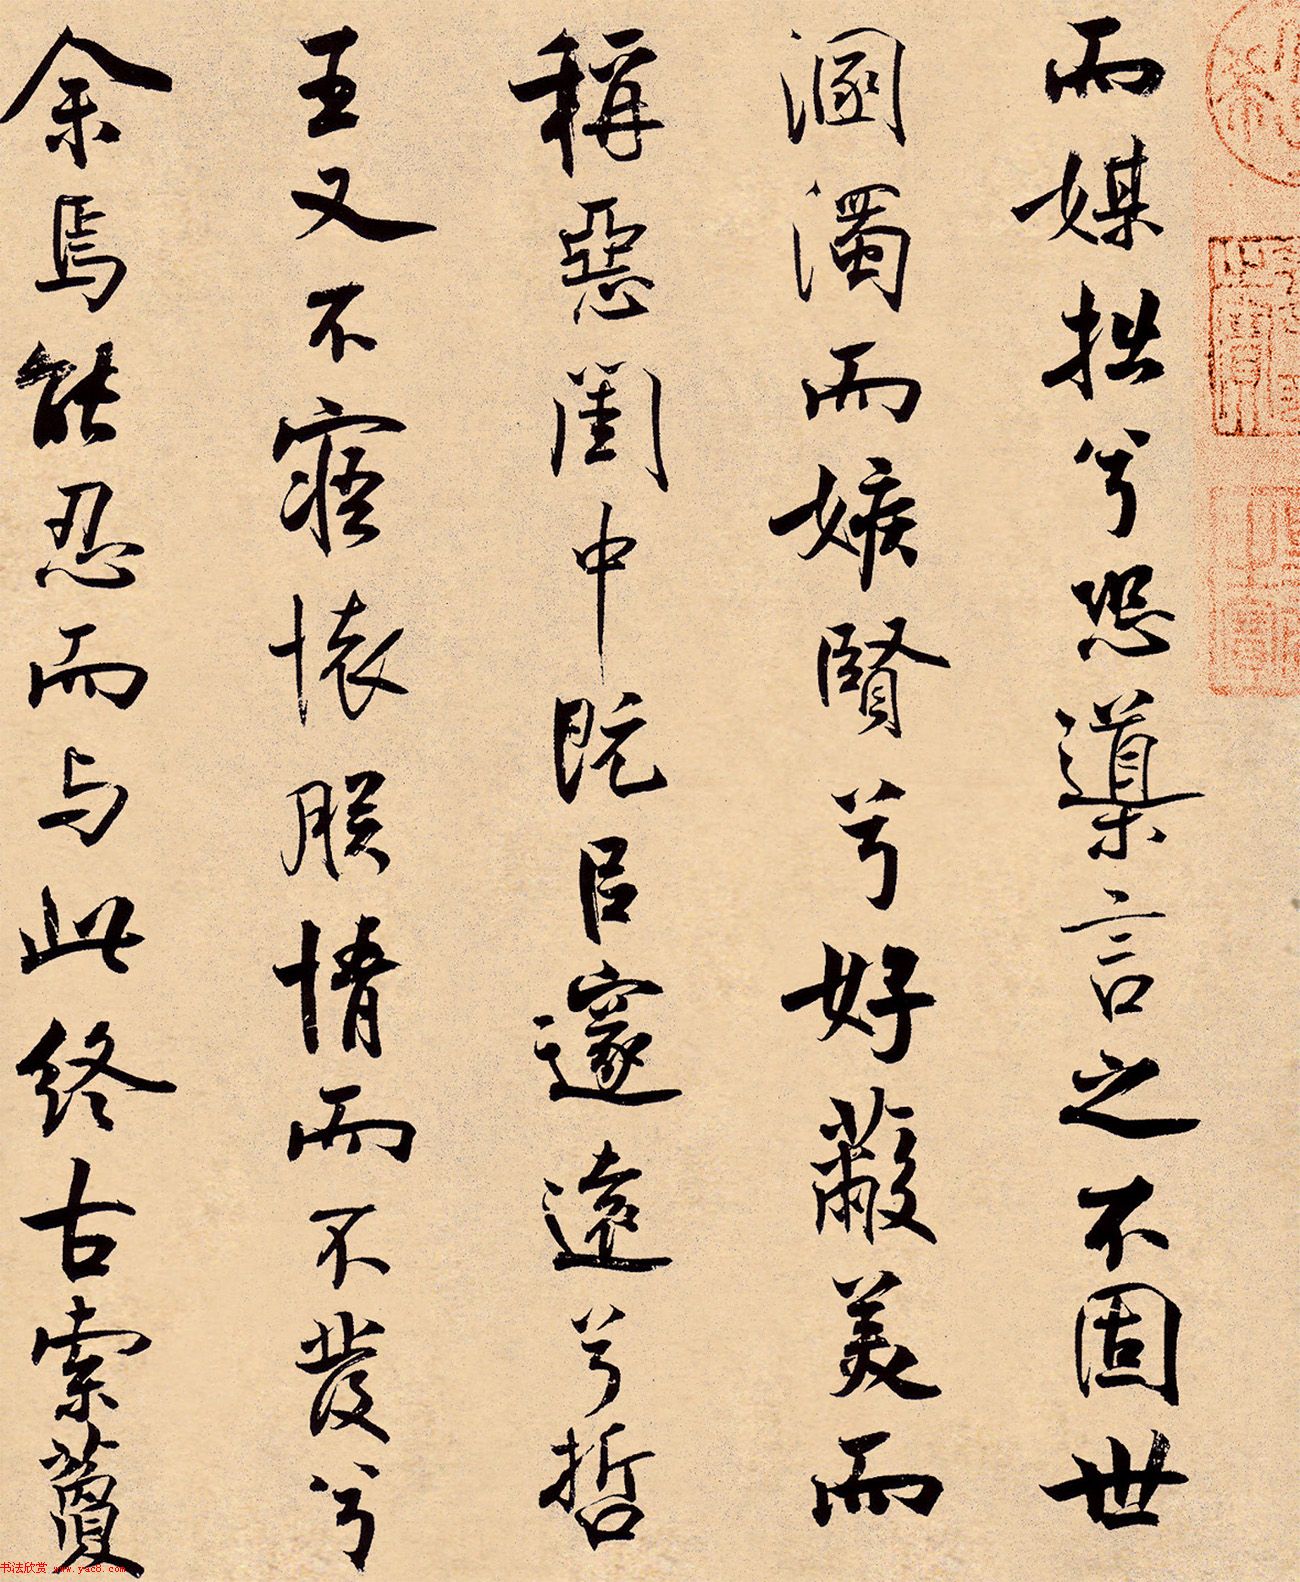 而媒拙兮恐導言之不固世
溷濁而嫉賢兮好蔽美而
稱惡閨中既㠯邃遠兮哲
王又不寤懷朕情而不發兮
余焉能忍而与此終古索藑
书法欣赏 www.yac8.com